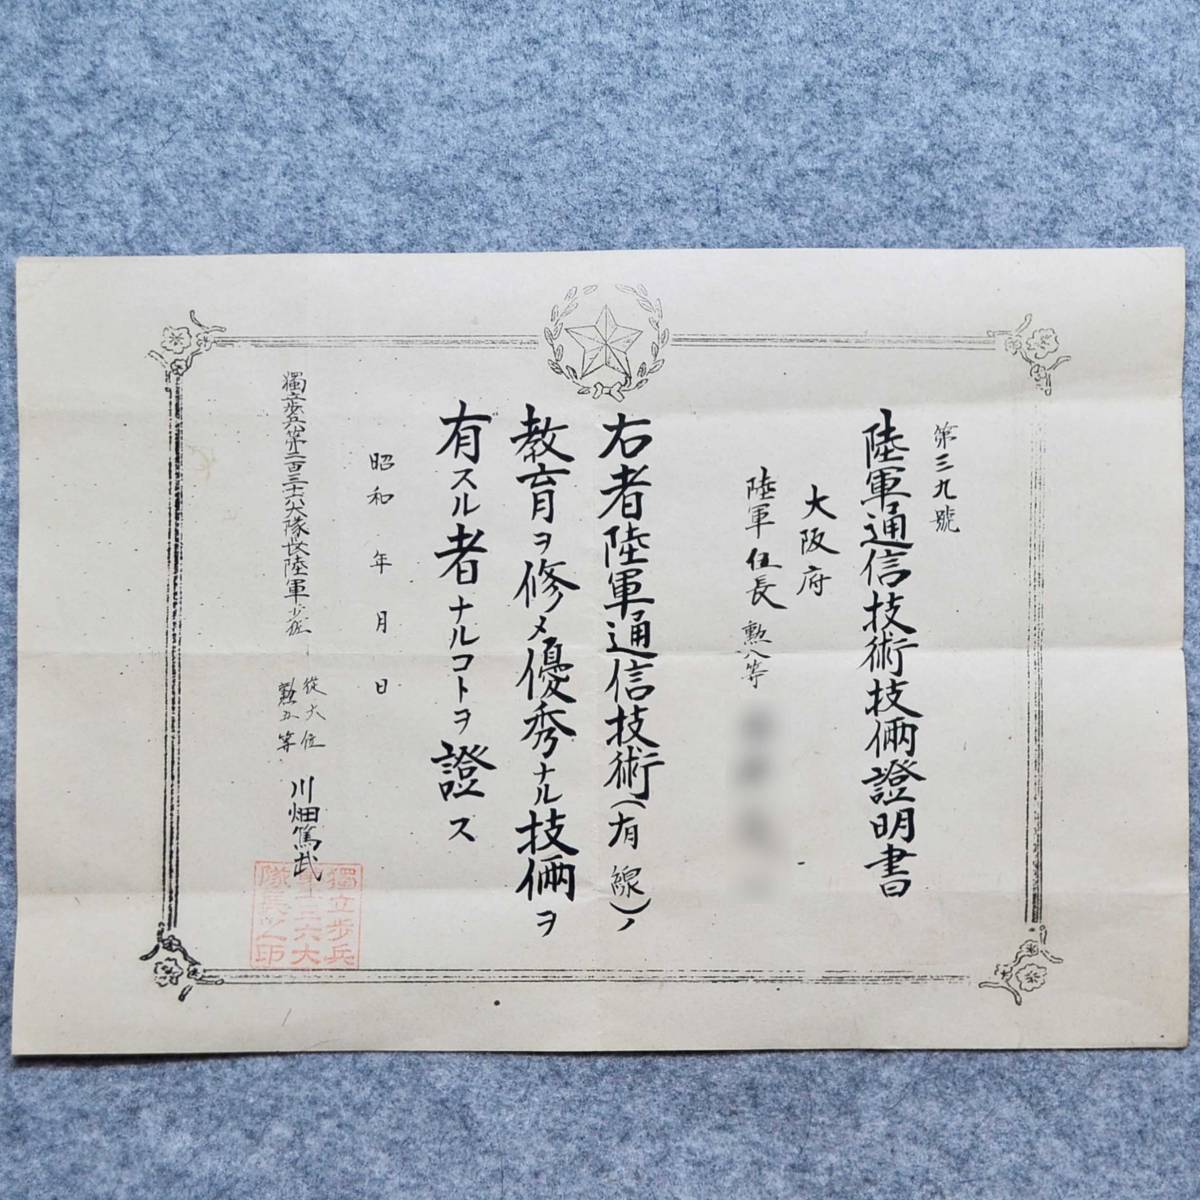 第三九號
陸軍通信技術技倆證明書
大阪府
陸軍伍長勲八等
右者陸軍通信技術（有線）ノ
教育ヲ修メ優秀ナル技倆ヲ
有スル者ナルコトヲ證ス
昭和 年 月 日
獨立歩兵第二百三十六大隊長陸軍少佐
從六位
勲五等
川畑篤武
獨立歩兵
三六大
隊長之印